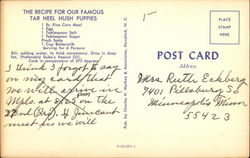 THE RECIPE FOR OUR FAMOUS
TAR HEEL HUSH PUPPIES
1 lb. Fine Corn Meal
1 Egg
1 Tablespoon Salt
1 Tablespoon Sugar
Pinch Soda
1 Cup Buttermilk
Serving for 6 Persons
Stir, adding water, to thick consistency. Drop in deep
fat, (Preferably Duke's Peanut Oil).
Cook in temperature of 375 degrees
I think I forgot to say
on my card that
we will arrive in
Mpls. at 8:25 on the
22nd
meet us we will
POST CARD
Address
Mrs Ruth Eckberg
7401 Pillsbury So
Minneapolis Minn
55423